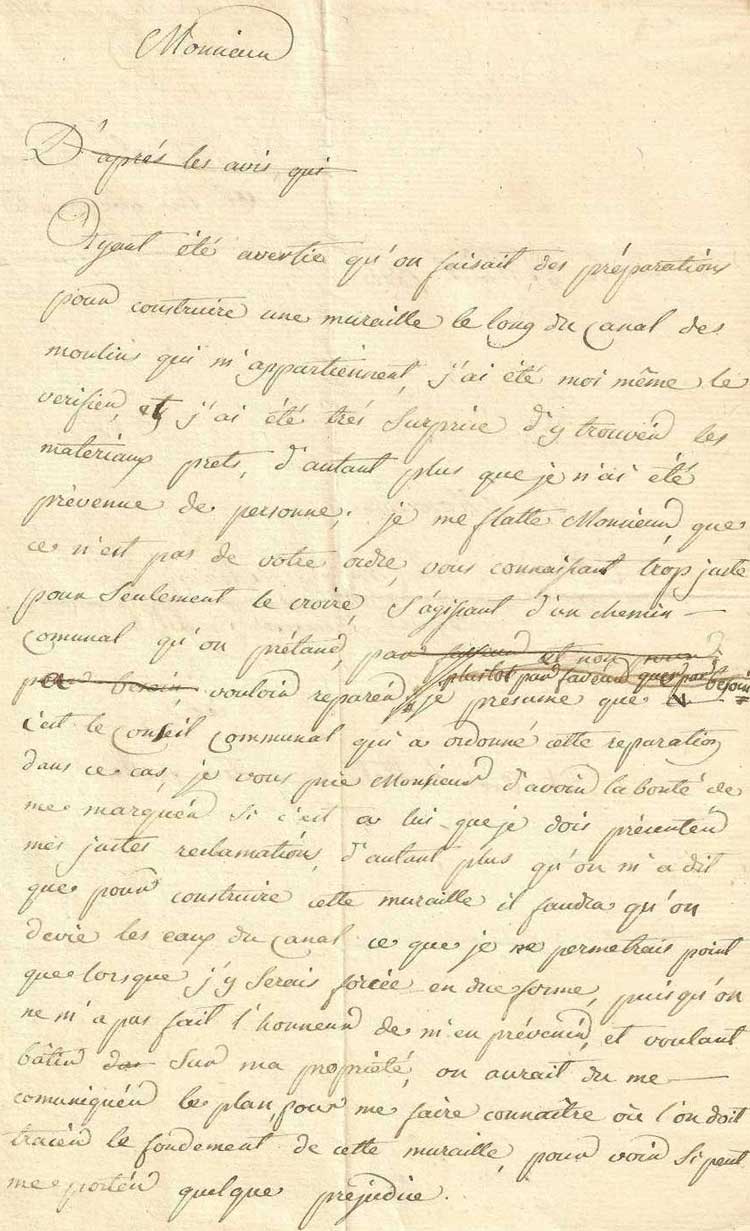 Monsieur
D'aprés les avis qui
Ayant été avertie qu'on faisait des préparations
pour construire une muraille le long du Canal des
moulins qui m'appartiennent, j'ai été moi même le
verifier, et j'ai été trés surprise d'y trouver les
materiaux prets, d'autant plus que je n'ai été
prévenue de personne; je me flatte Monsieur, que
ce n'est pas de votre ordre, vous connaissant trop juste
pour seulement le croire, s'agissant d'un chemin
Comunal qu'on prétand, par faveur et non pour
plustot par faveur que par besoin
besoin, vouloir reparer, je présume que
c'est le Conseil Communal qui a ordonné cette reparation
dans ce cas, je vous prie Monsieur d'avoir la bonté de
me marquer si c'est a lui que je dois présenter
mes justes reclamations, d'autant plus qu'on m'a dit
que pour construire cette muraille il faudra qu'on
devie les eaux du Canal ce que je ne permetrais point
que lorsque j'y serais forcée en due forme, puisqu'on
ne m'a pas fait l'honneur de m'en prévenir, et voulant
bâtir sur ma propriété, on aurait du me
comuniquér le plan, pour me faire connaître où l'on doit
tracér le fondement de cette muraille, pour voir si peut
me portér quelque préjudice.